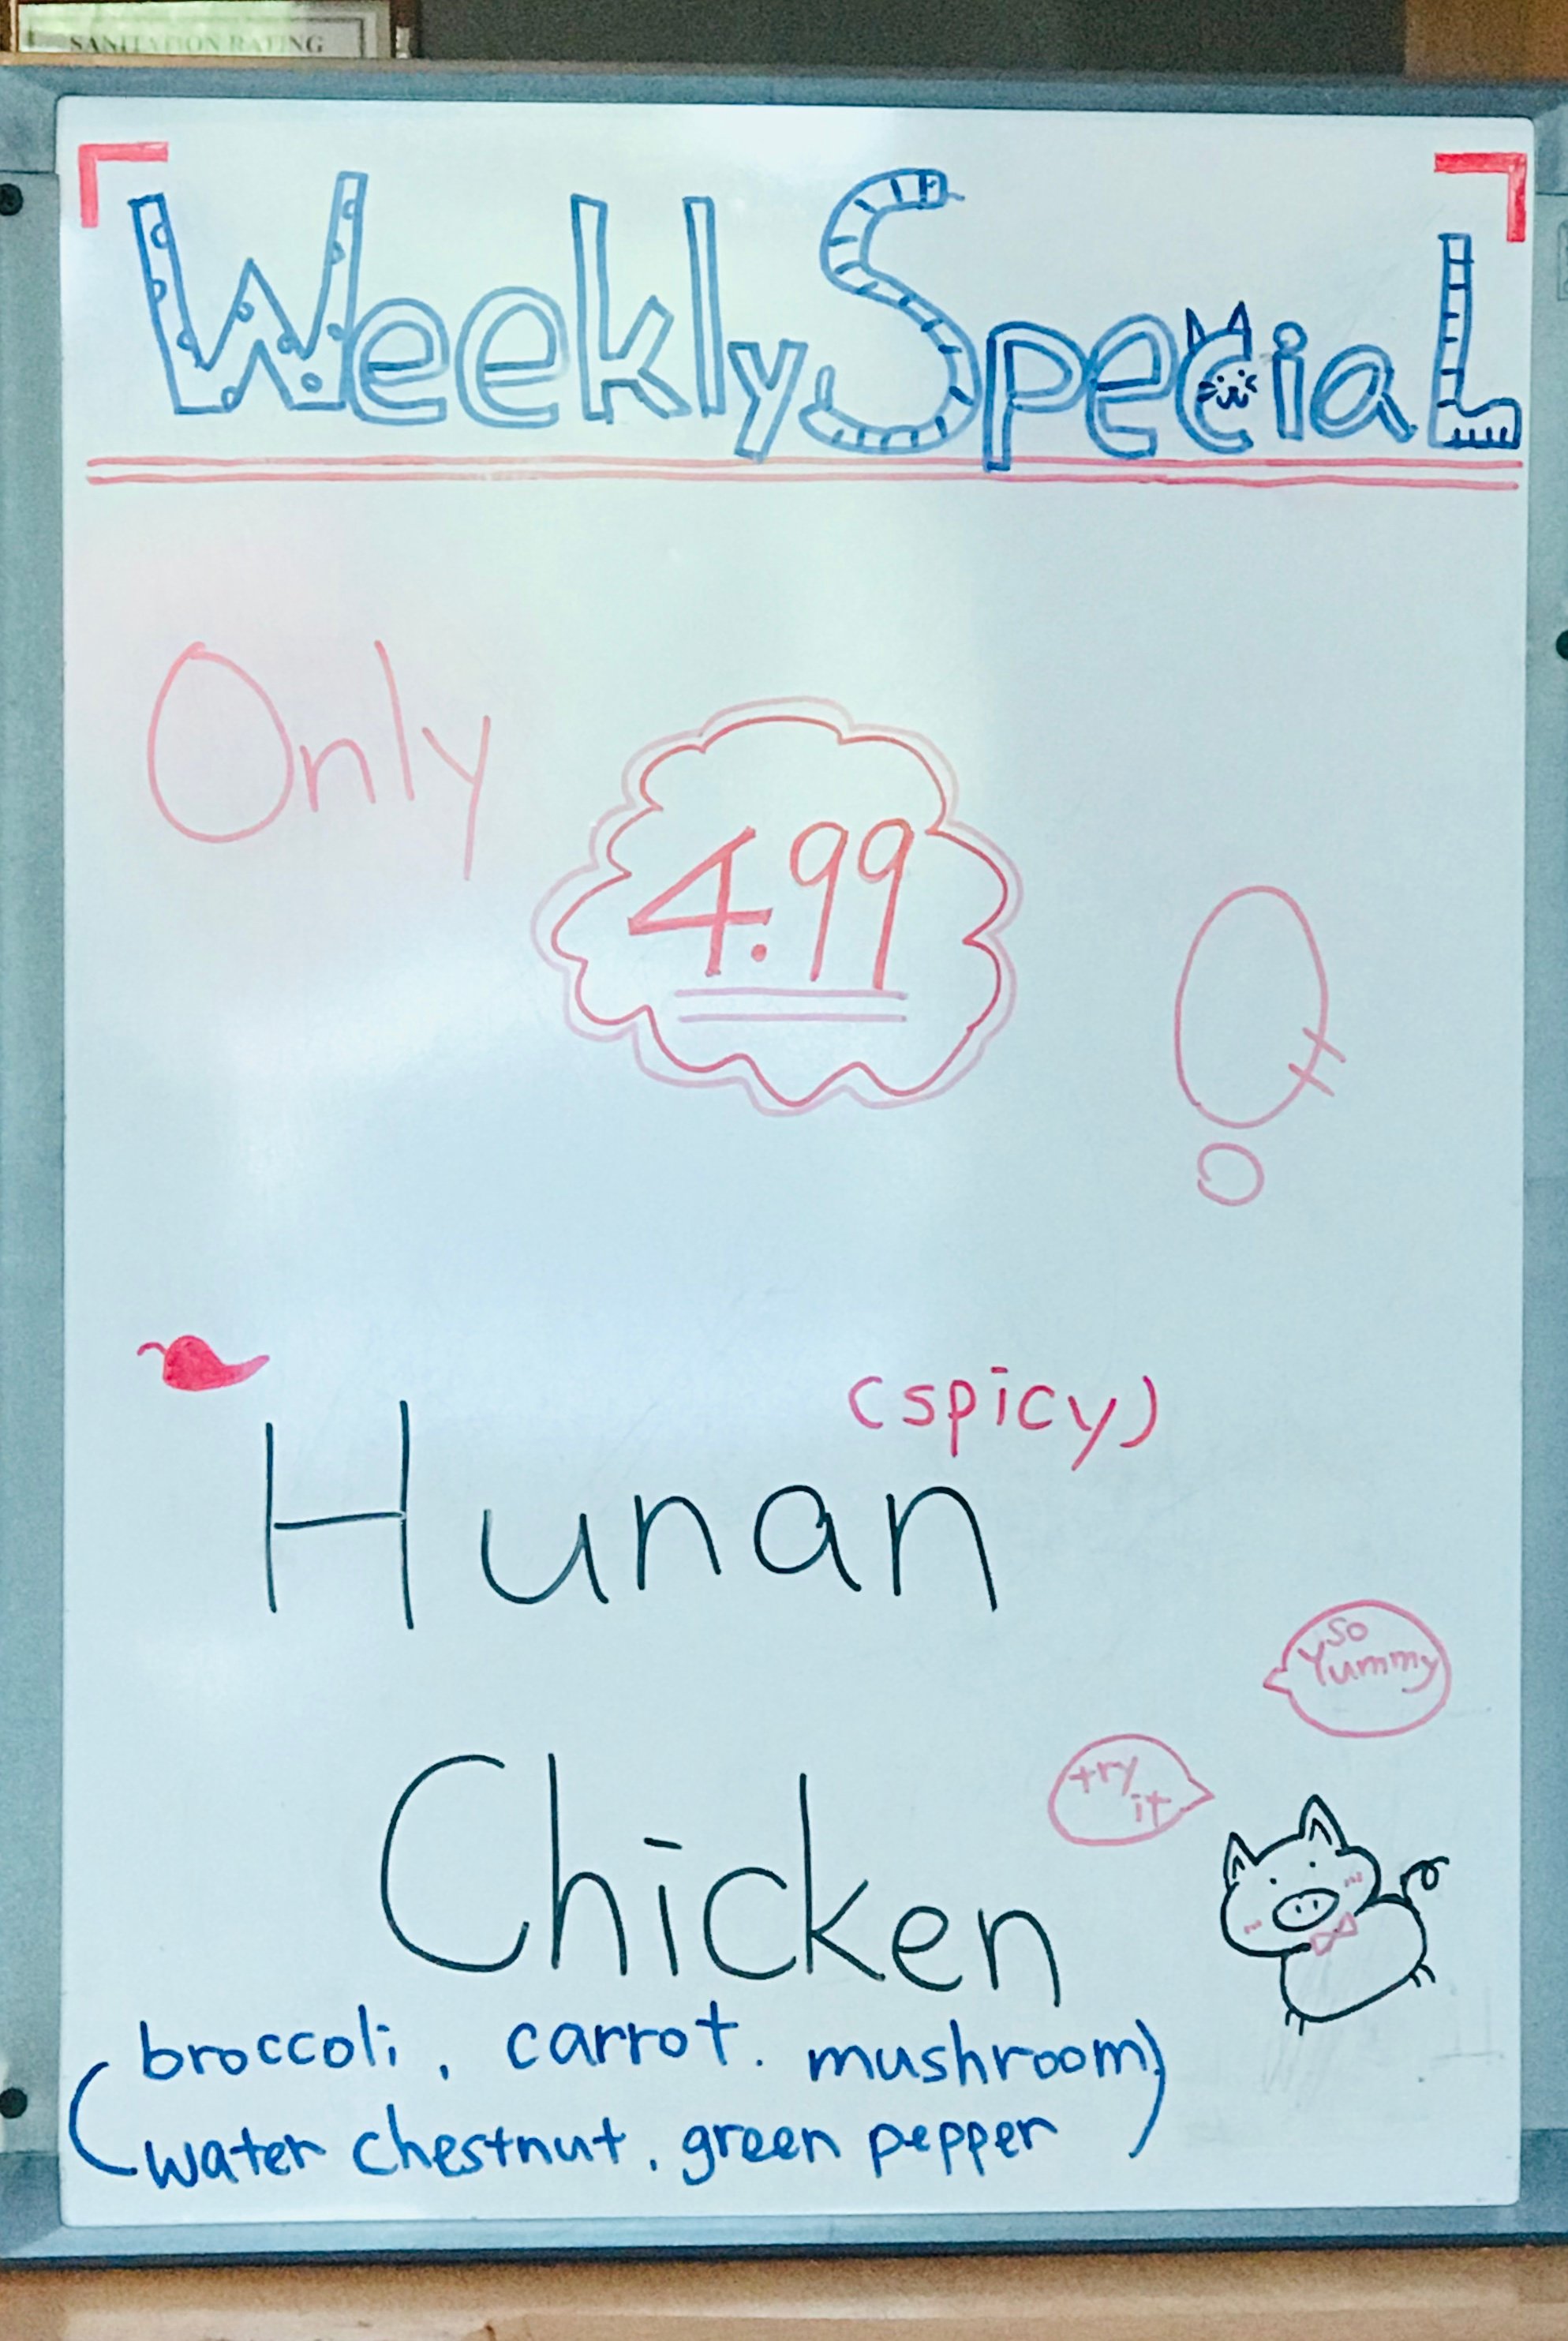 SANITATION RATING
Weekly SpeciaL
Only
4.99
(spicy)
Hunan
so
Yummy
try
it
Chicken
(broccoli, carrot. mushroom)
water chestnut, green pepper